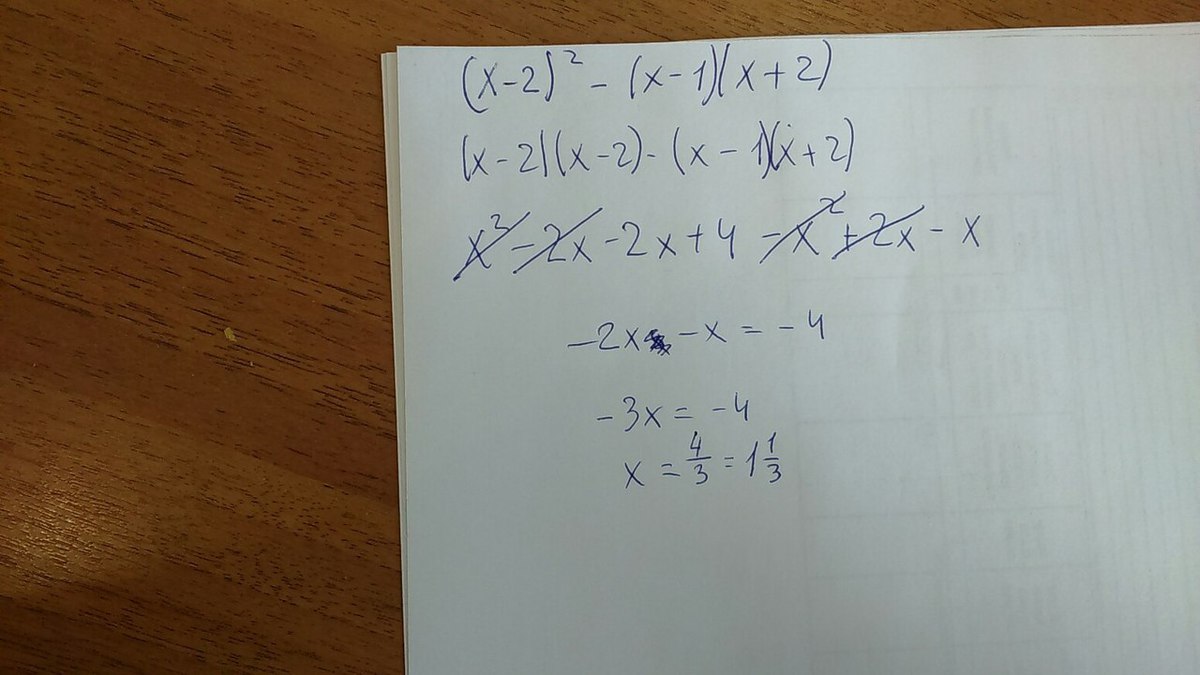 (x-2)² - (x-1)(x+2)
(x-2)(x-2) - (x-1)(x+2)
x² - 2x - 2x + 4 - x² + 2x - x
-2x - x = -4
-3x = -4
x = 4/3 = 1 1/3